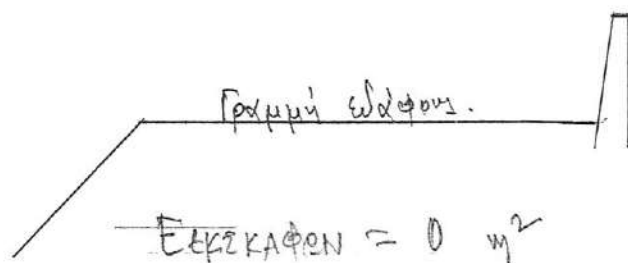 Γραμμή εδάφους.
Εεκσκαφων = 0 m²